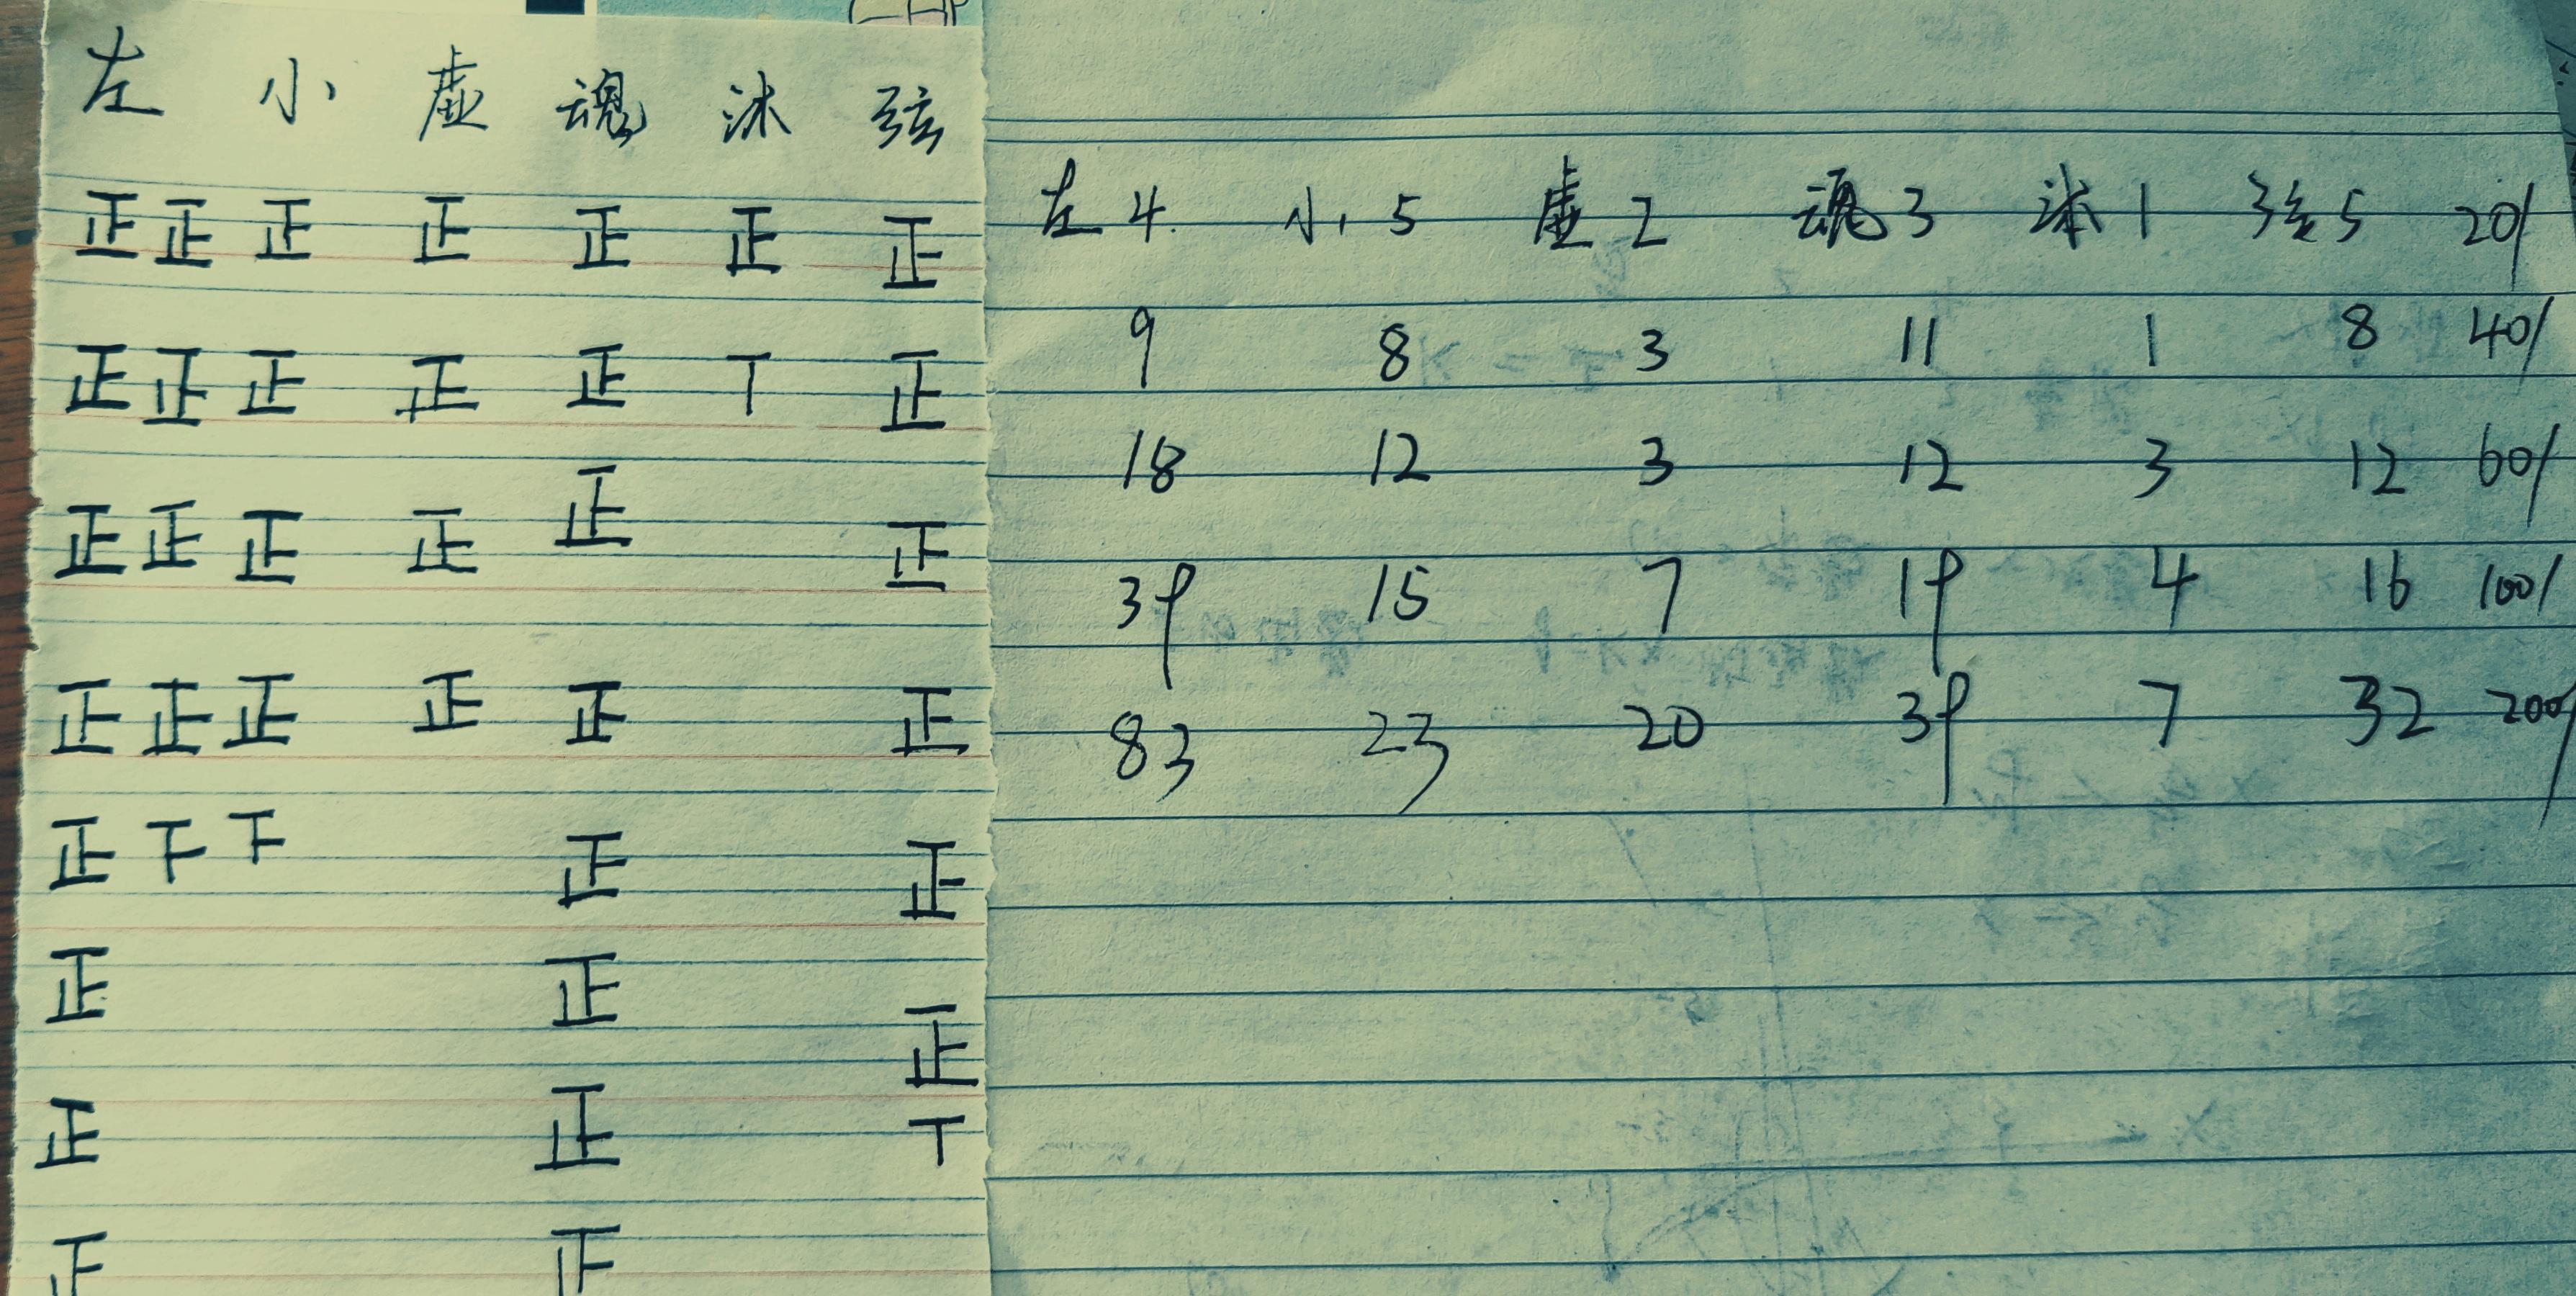 左 小 虚 魂 沐 弦
正 正 正 正 正 正 正
正 正 正 正 正 丅 正
正 正 正 正 正 正
正 正 正 正 正 正
正 下 下 正 正
正 正 正
正 正 丅
正
左 4 小 5 虚 2 魂 3 沐 1 弦 5 20/
9 8 3 11 1 8 40/
18 12 3 12 3 12 60/
39 15 7 19 4 16 100/
83 23 20 39 7 32 200/